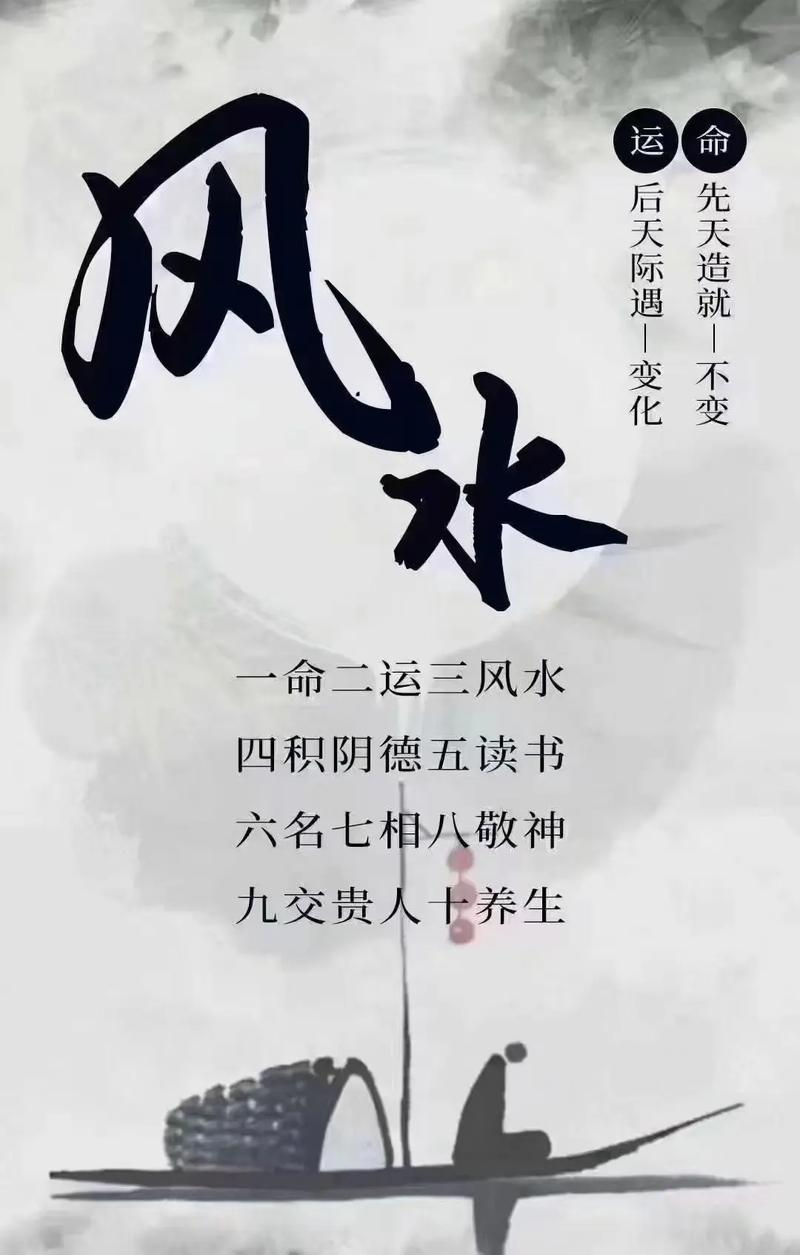 风水
命
先天造就—不变
运
后天际遇—变化
一命二运三风水
四积阴德五读书
六名七相八敬神
九交贵人十养生